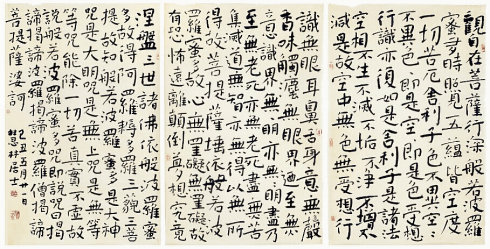 觀自在菩薩行深般若波羅
蜜多時照見五蘊皆空度
一切苦厄舍利子色不異空空
不異色色即是空空即是色受想
行識亦復如是舍利子是諸法
空相不生不滅不垢不淨不增不
減是故空中無色無受想行
識無眼耳鼻舌身意無色聲
香味觸法無眼界乃至無
意識界無無明亦無無明盡乃
至無老死亦無老死盡無苦
集滅道無智亦無得以無所
得故菩提薩埵依般若波
羅蜜多故心無罣礙無罣礙故
有恐怖遠離顛倒夢想究竟
涅槃三世諸佛依般若波羅蜜
多故得阿耨多羅三藐三菩
提故知般若波羅蜜多是大神
咒是大明咒是無上咒是無等
等咒能除一切苦真實不虛故
說般若波羅蜜多咒即說咒曰揭
諦揭諦波羅揭諦波羅僧揭諦
菩提薩婆訶
己丑五月廿日